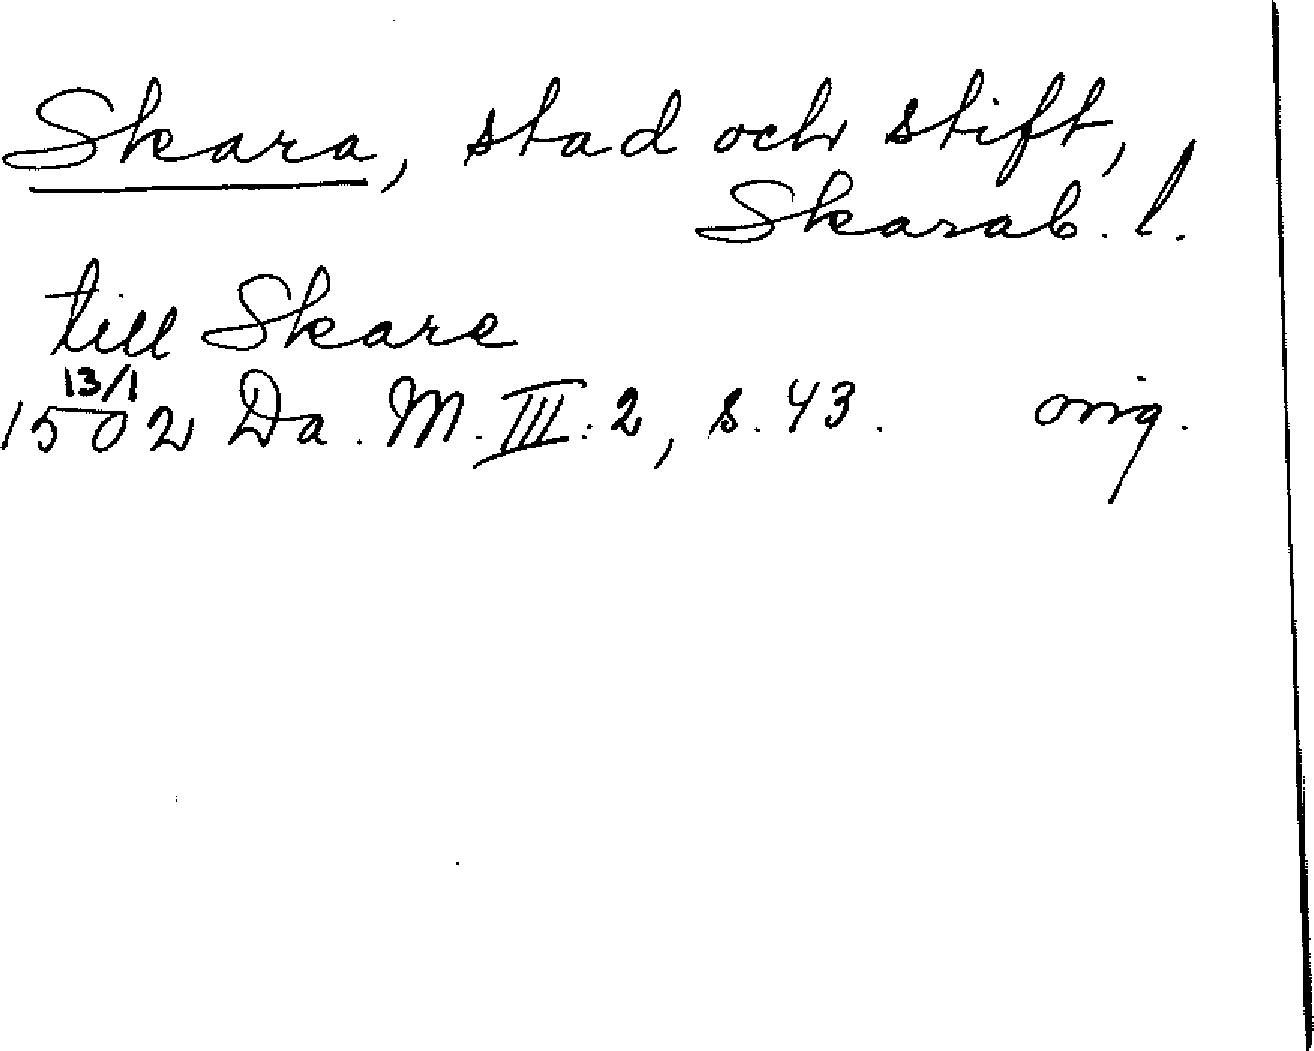 Skara, stad och stift,
Skarab. l.
till Skare
13/1
1502 Da. M. III:2, s. 43. orig.